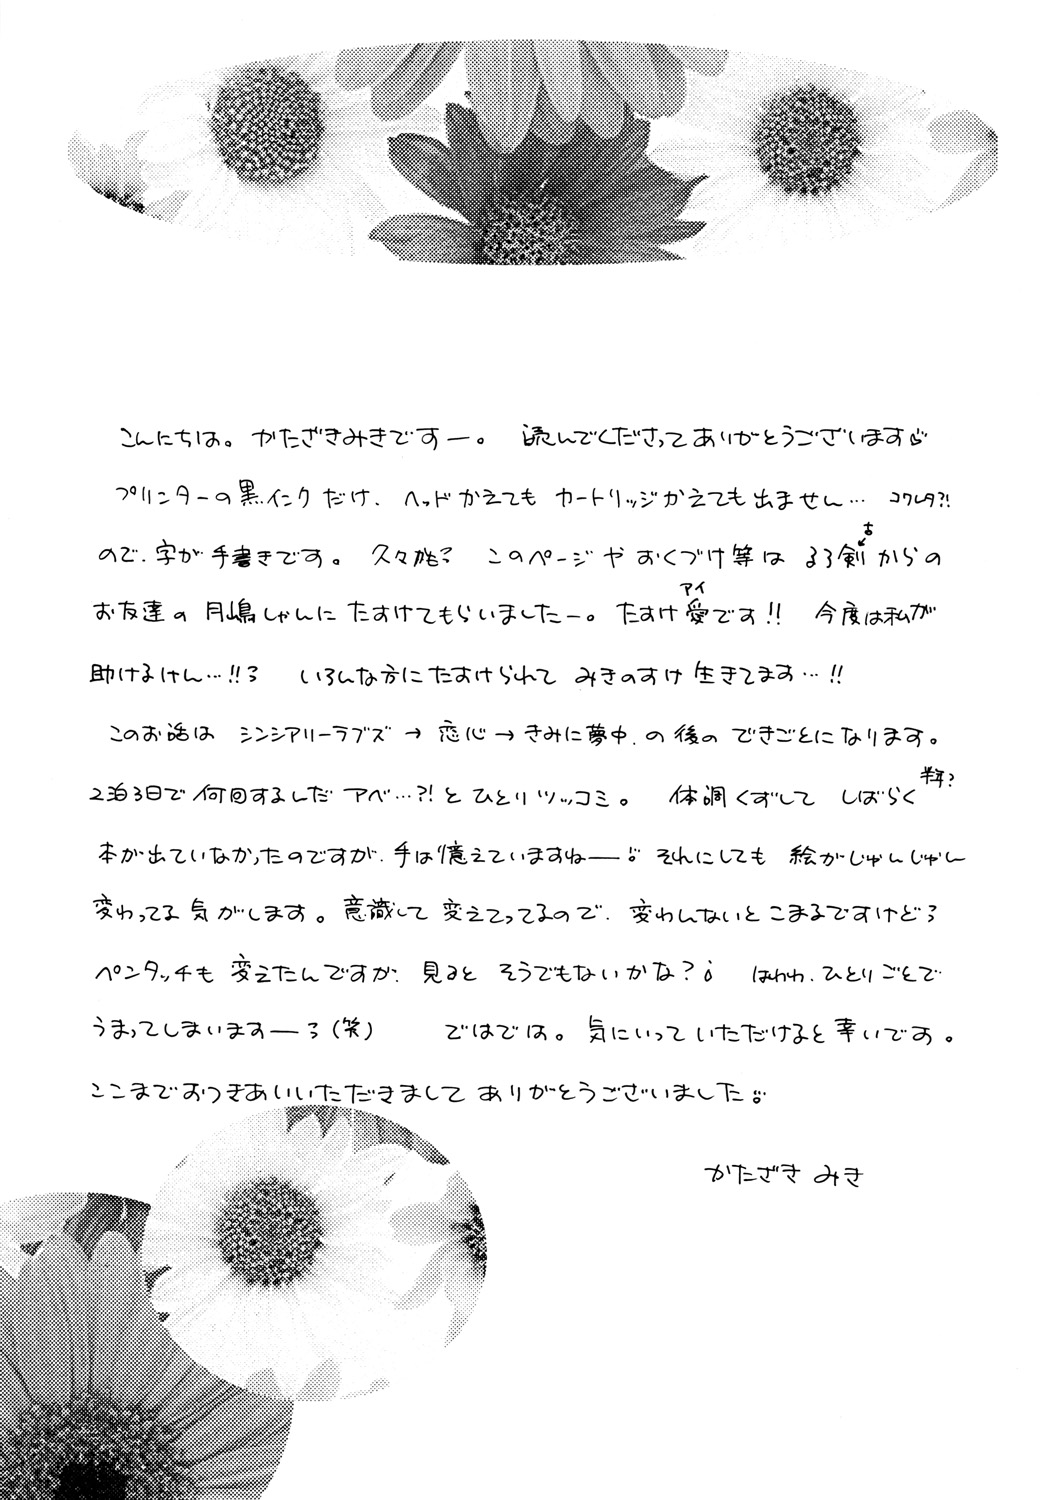 こんにちは。かたざきみきですー。 読んでくださってありがとうございます
プリンターの黒インクだけ、ヘッドかえても カートリッジかえても出ません… コワレタ?!
古
ので、字が手書きです。 久々かも? このページや おくづけ等は るろ剣からの
アイ
お友達の 月嶋しゃんに たすけてもらいましたー。 たすけ愛です!! 今度は私が
助けるけん…!!ろ いろんな方に たすけられて みきのすけ 生きてます…!!
このお話は シンシアリーラブズ → 恋心 → きみに夢中、の後の できごとになります。
半年?
2泊3日で 何回するんだ アベ…?! と ひとりツッコミ。 体調くずして しばらく
本が出ていなかったのですが、手は憶えていますねー それにしても 絵がじゃんじゃん
変わってる 気がします。意識して 変えてってるので、変わんないと こまるですけどろ
ペンタッチも 変えたんですが、見ると そうでもないかな? はわわ、ひとりごとで
うまってしまいますーろ(笑) ではでは。気にいって いただけると 幸いです。
ここまでおつきあいいただきまして ありがとうございました
かたざき みき